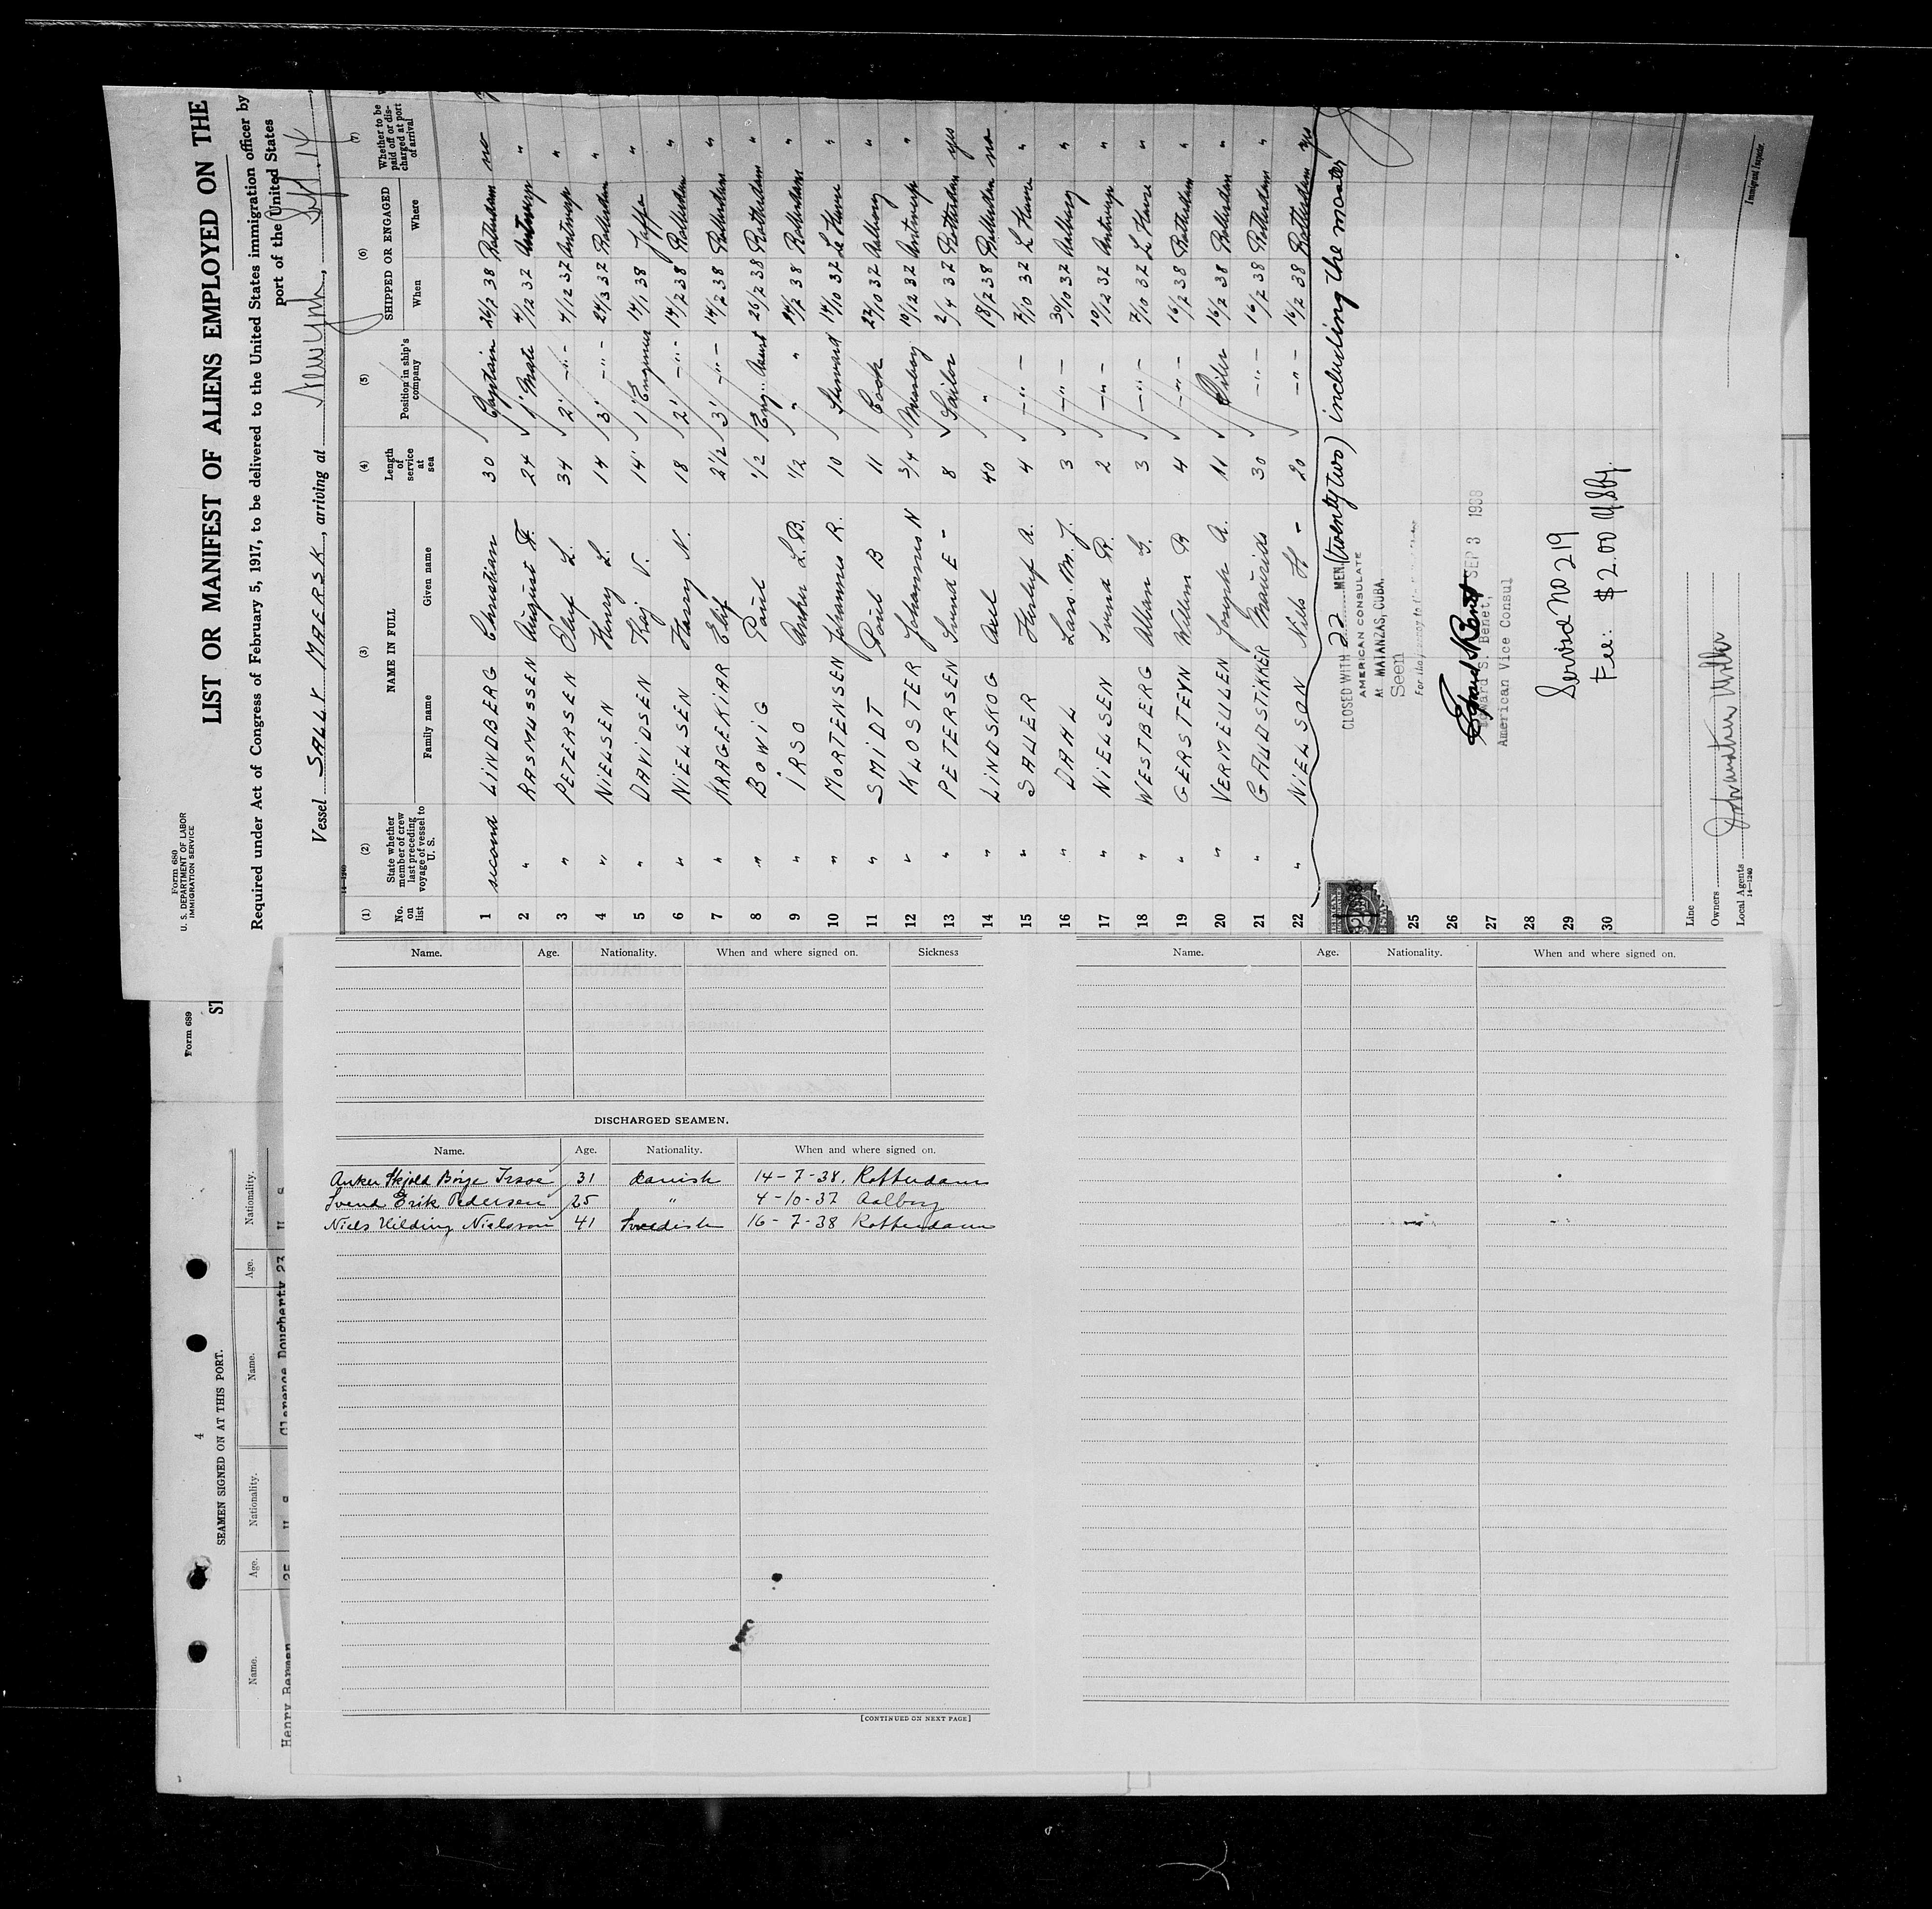 Form 680
U. S. DEPARTMENT OF LABOR
IMMIGRATION SERVICE
LIST OR MANIFEST OF ALIENS EMPLOYED ON THE
Required under Act of Congress of February 5, 1917, to be delivered to the United States immigration officer by
port of the United States
Vessel SALLY MAERSK, arriving at New York, Sept. 14
14—1240
(1) (2) (3) (4) (5) (6) (7)
No. on list
State whether member of crew last preceding voyage of vessel to U. S.
NAME IN FULL
Family name Given name
Length of service at sea
Position in ship's company
SHIPPED OR ENGAGED
When Where
Whether to be paid off or discharged at port of arrival
1 second LINDBERG Christian 30 Captain 26/7 38 Rotterdam no
2 " RASMUSSEN August F. 24 1' Mate 4/12 37 Antwerp "
3 " PETERSEN Oluf L. 34 2' -"- 4/12 37 Antwerp "
4 " NIELSEN Henry L. 14 3' -"- 24/3 37 Rotterdam "
5 " DAVIDSEN Kaj V. 14 1' Engineer 14/1 38 "
6 " NIELSEN Harry N. 18 2' -"- 14/7 38 Rotterdam "
7 " KRAGEKIAR 2 1/2 3' -"- 14/7 38 Rotterdam "
8 " BOWIG Poul 1/2 Eng. Assist 26/7 38 Rotterdam "
9 " IRSO Anker L.B. 1/2 " 14/7 38 Rotterdam "
10 " MORTENSEN Johannes R. 10 Steward 14/10 37 Le Havre "
11 " SMIDT Poul B 11 Cook 22/10 37 Aalborg "
12 " KLOSTER Johannes N 3/4 Messboy 10/12 37 Antwerp "
13 " PETERSEN Svend E - 8 Sailor 2/4 37 Rotterdam yes
14 " LINDSKOG Axel 40 " 18/7 38 Rotterdam no
15 " SAUER Herluf A. 4 -"- 7/10 37 L Havre "
16 " DAHL Lars. M. J. 3 -"- 30/10 37 Aalborg "
17 " NIELSEN Svend R. 2 -"- 10/12 37 Antwerp "
18 " WESTBERG Allan G. 3 -"- 7/10 37 L Havre "
19 " GERSTEYN Willem B 4 -"- 16/7 38 Rotterdam "
20 " VERMEULEN Joseph A. 11 Oiler 16/7 38 Rotterdam "
21 " GAUDSTIKKER Mauricids 30 -"- 16/7 38 Rotterdam "
22 " NIELSON Nills H - 20 -"- 16/7 38 Rotterdam yes
CLOSED WITH 22 MEN (twenty two) including the master
AMERICAN CONSULATE
At MATANZAS, CUBA.
Seen
For the journey to the United States
SEP 3 1938
Edward S. Benet,
American Vice Consul
Service No 219
Fee: $2.00
25
26
27
28
29
30
Line
Owners
Local Agents
14—1240
Immigrant Inspector.
Form 689
4
SEAMEN SIGNED ON AT THIS PORT.
Name. Age. Nationality. Name. Age. Nationality.
Henry Berman 25 U S Clarence Dougherty 23 U S
Name. Age. Nationality. When and where signed on. Sickness
DISCHARGED SEAMEN.
Name. Age. Nationality. When and where signed on.
Anker Skjold Börje Irsoe 31 Danish 14-7-38. Rotterdam
Svend Erik Pedersen 25 " 4-10-37 Aalborg
Niels Hilding Nielsson 41 Swedish 16-7-38 Rotterdam
[CONTINUED ON NEXT PAGE]
Name. Age. Nationality. When and where signed on.